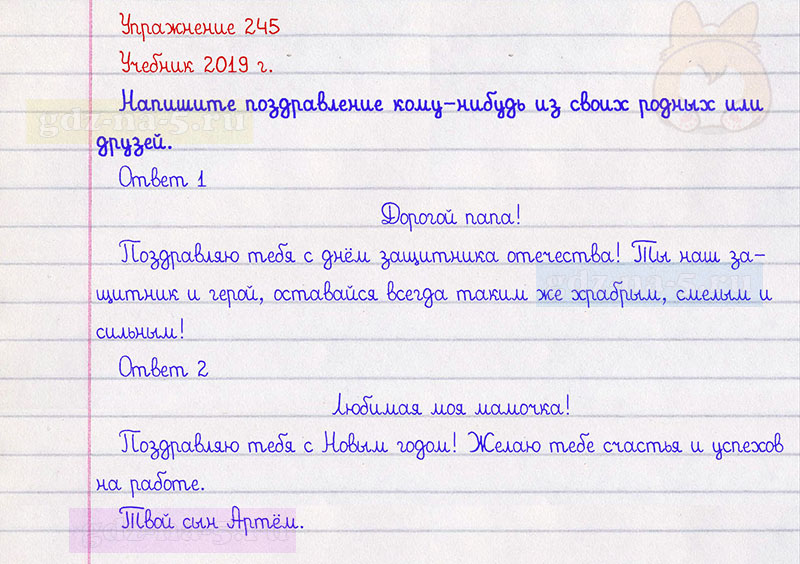 Упражнение 245
Учебник 2019 г.
Напишите поздравление кому-нибудь из своих родных или
друзей.
gdz-na-5.ru
Ответ 1
Дорогой папа!
Поздравляю тебя с днём защитника отечества! Ты наш за-
щитник и герой, оставайся всегда таким же храбрым, смелым и
gdz-na-5.ru
сильным!
Ответ 2
Любимая моя мамочка!
Поздравляю тебя с Новым годом! Желаю тебе счастья и успехов
на работе.
Твой сын Артём.
gdz-na-5.ru